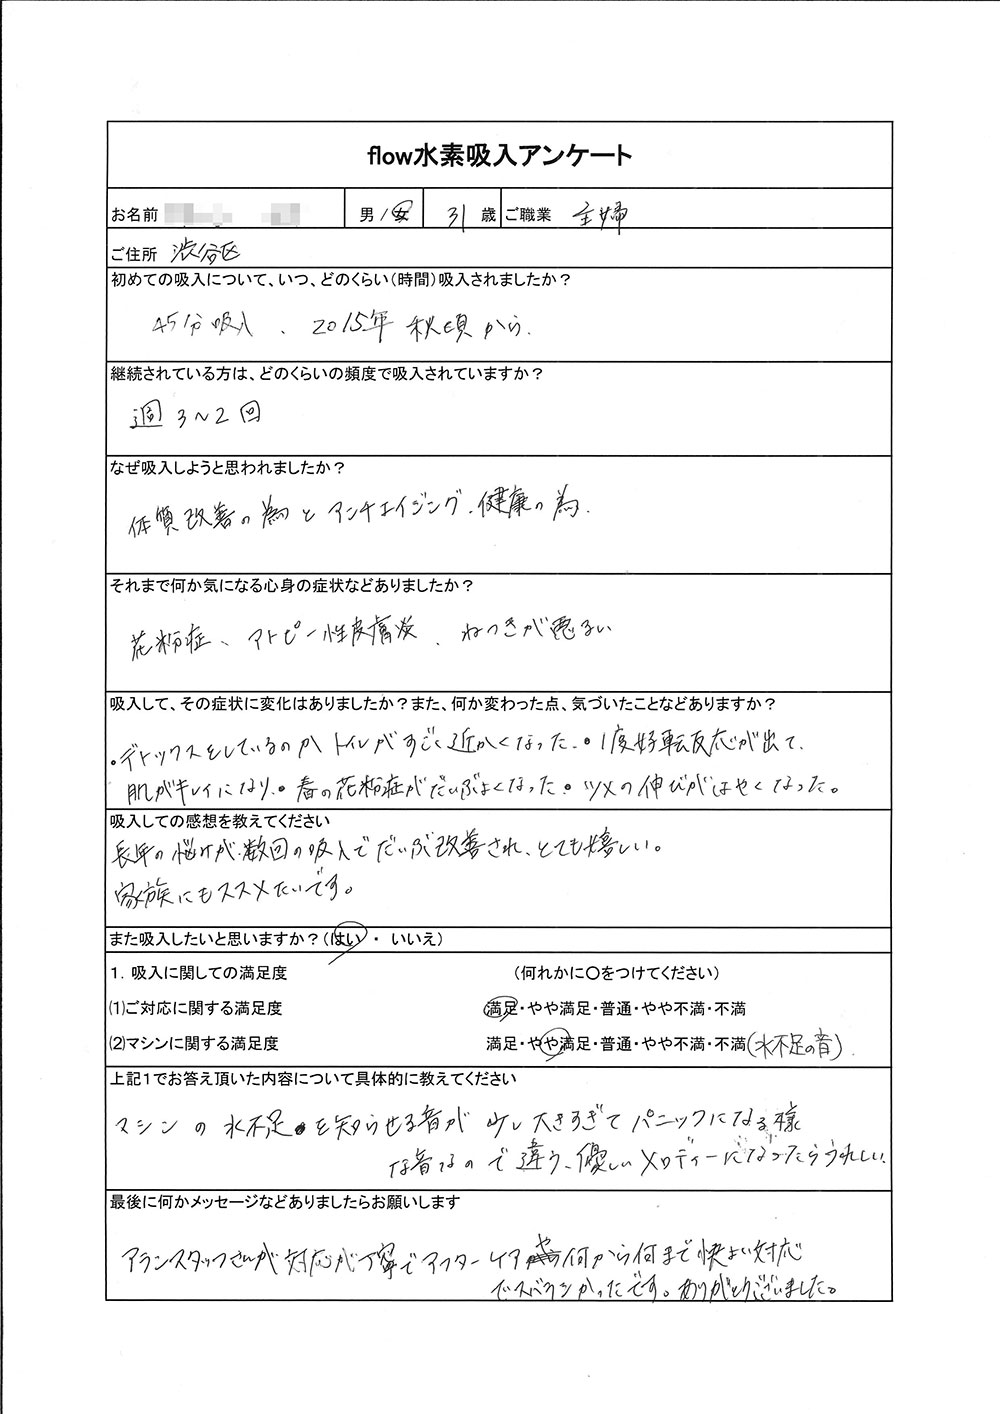 flow水素吸入アンケート
お名前 男/女 31 歳 ご職業 主婦
ご住所 渋谷区
初めての吸入について、いつ、どのくらい(時間)吸入されましたか?
45分吸入、2015年 秋頃から.
継続されている方は、どのくらいの頻度で吸入されていますか?
週 3~2 回
なぜ吸入しようと思われましたか?
体質改善の為とアンチエイジング、健康の為.
それまで何か気になる心身の症状などありましたか?
花粉症、アトピー性皮膚炎、ねつきが悪るい
吸入して、その症状に変化はありましたか?また、何か変わった点、気づいたことなどありますか?
。デトックスをしているのか トイレがすごく近かくなった。。1度好転反応が出て、
肌がキレイになり。。春の花粉症がだいぶよくなった。ツメの伸びがはやくなった。
吸入しての感想を教えてください
長年の悩みが、数回の吸入でだいぶ改善され、とても嬉しい。
家族にもススメたいです。
また吸入したいと思いますか?(はい ・ いいえ)
1. 吸入に関しての満足度 (何れかに〇をつけてください)
(1)ご対応に関する満足度 満足・やや満足・普通・やや不満・不満
(2)マシンに関する満足度 満足・やや満足・普通・やや不満・不満(水不足の音)
上記1でお答え頂いた内容について具体的に教えてください
マシンの水不足を知らせる音が 少し大きすぎて パニックになる様
な音なので 違う、優しいメロディーになったらうれしい.
最後に何かメッセージなどありましたらお願いします
アランスタッフさんが対応が丁寧でアフターケアや何から何まで快よい対応
でスバラシかったです。ありがとうございました。